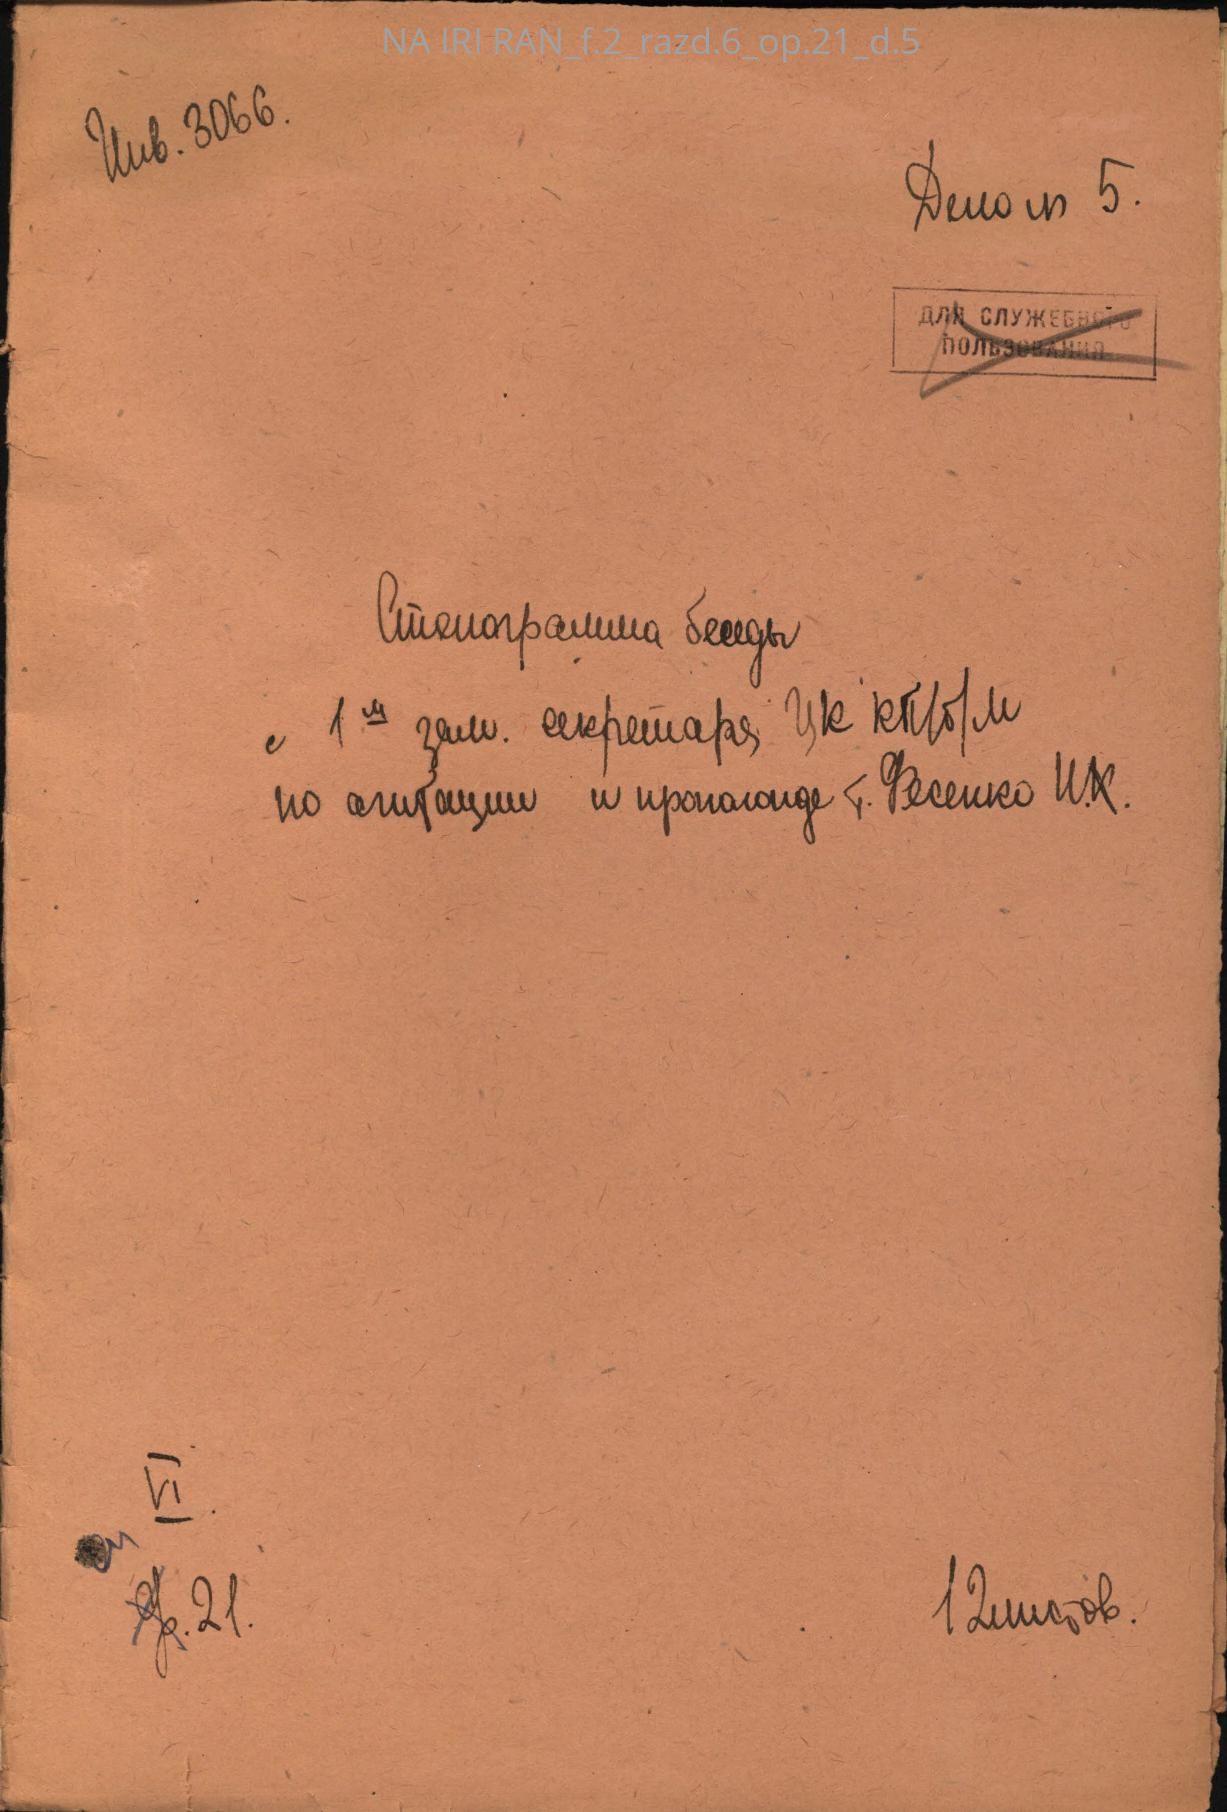 NA IRI RAN_f.2_razd.6_op.21_d.5
Инв. 3066.
Дело № 5.
ДЛЯ СЛУЖЕБНОГО
ПОЛЬЗОВАНИЯ
Стенограмма беседы
с 1м зам. секретаря ЦК КП/б/М
по агитации и пропаганде т. Фесенко И.К.
VI
21.
12 листов.